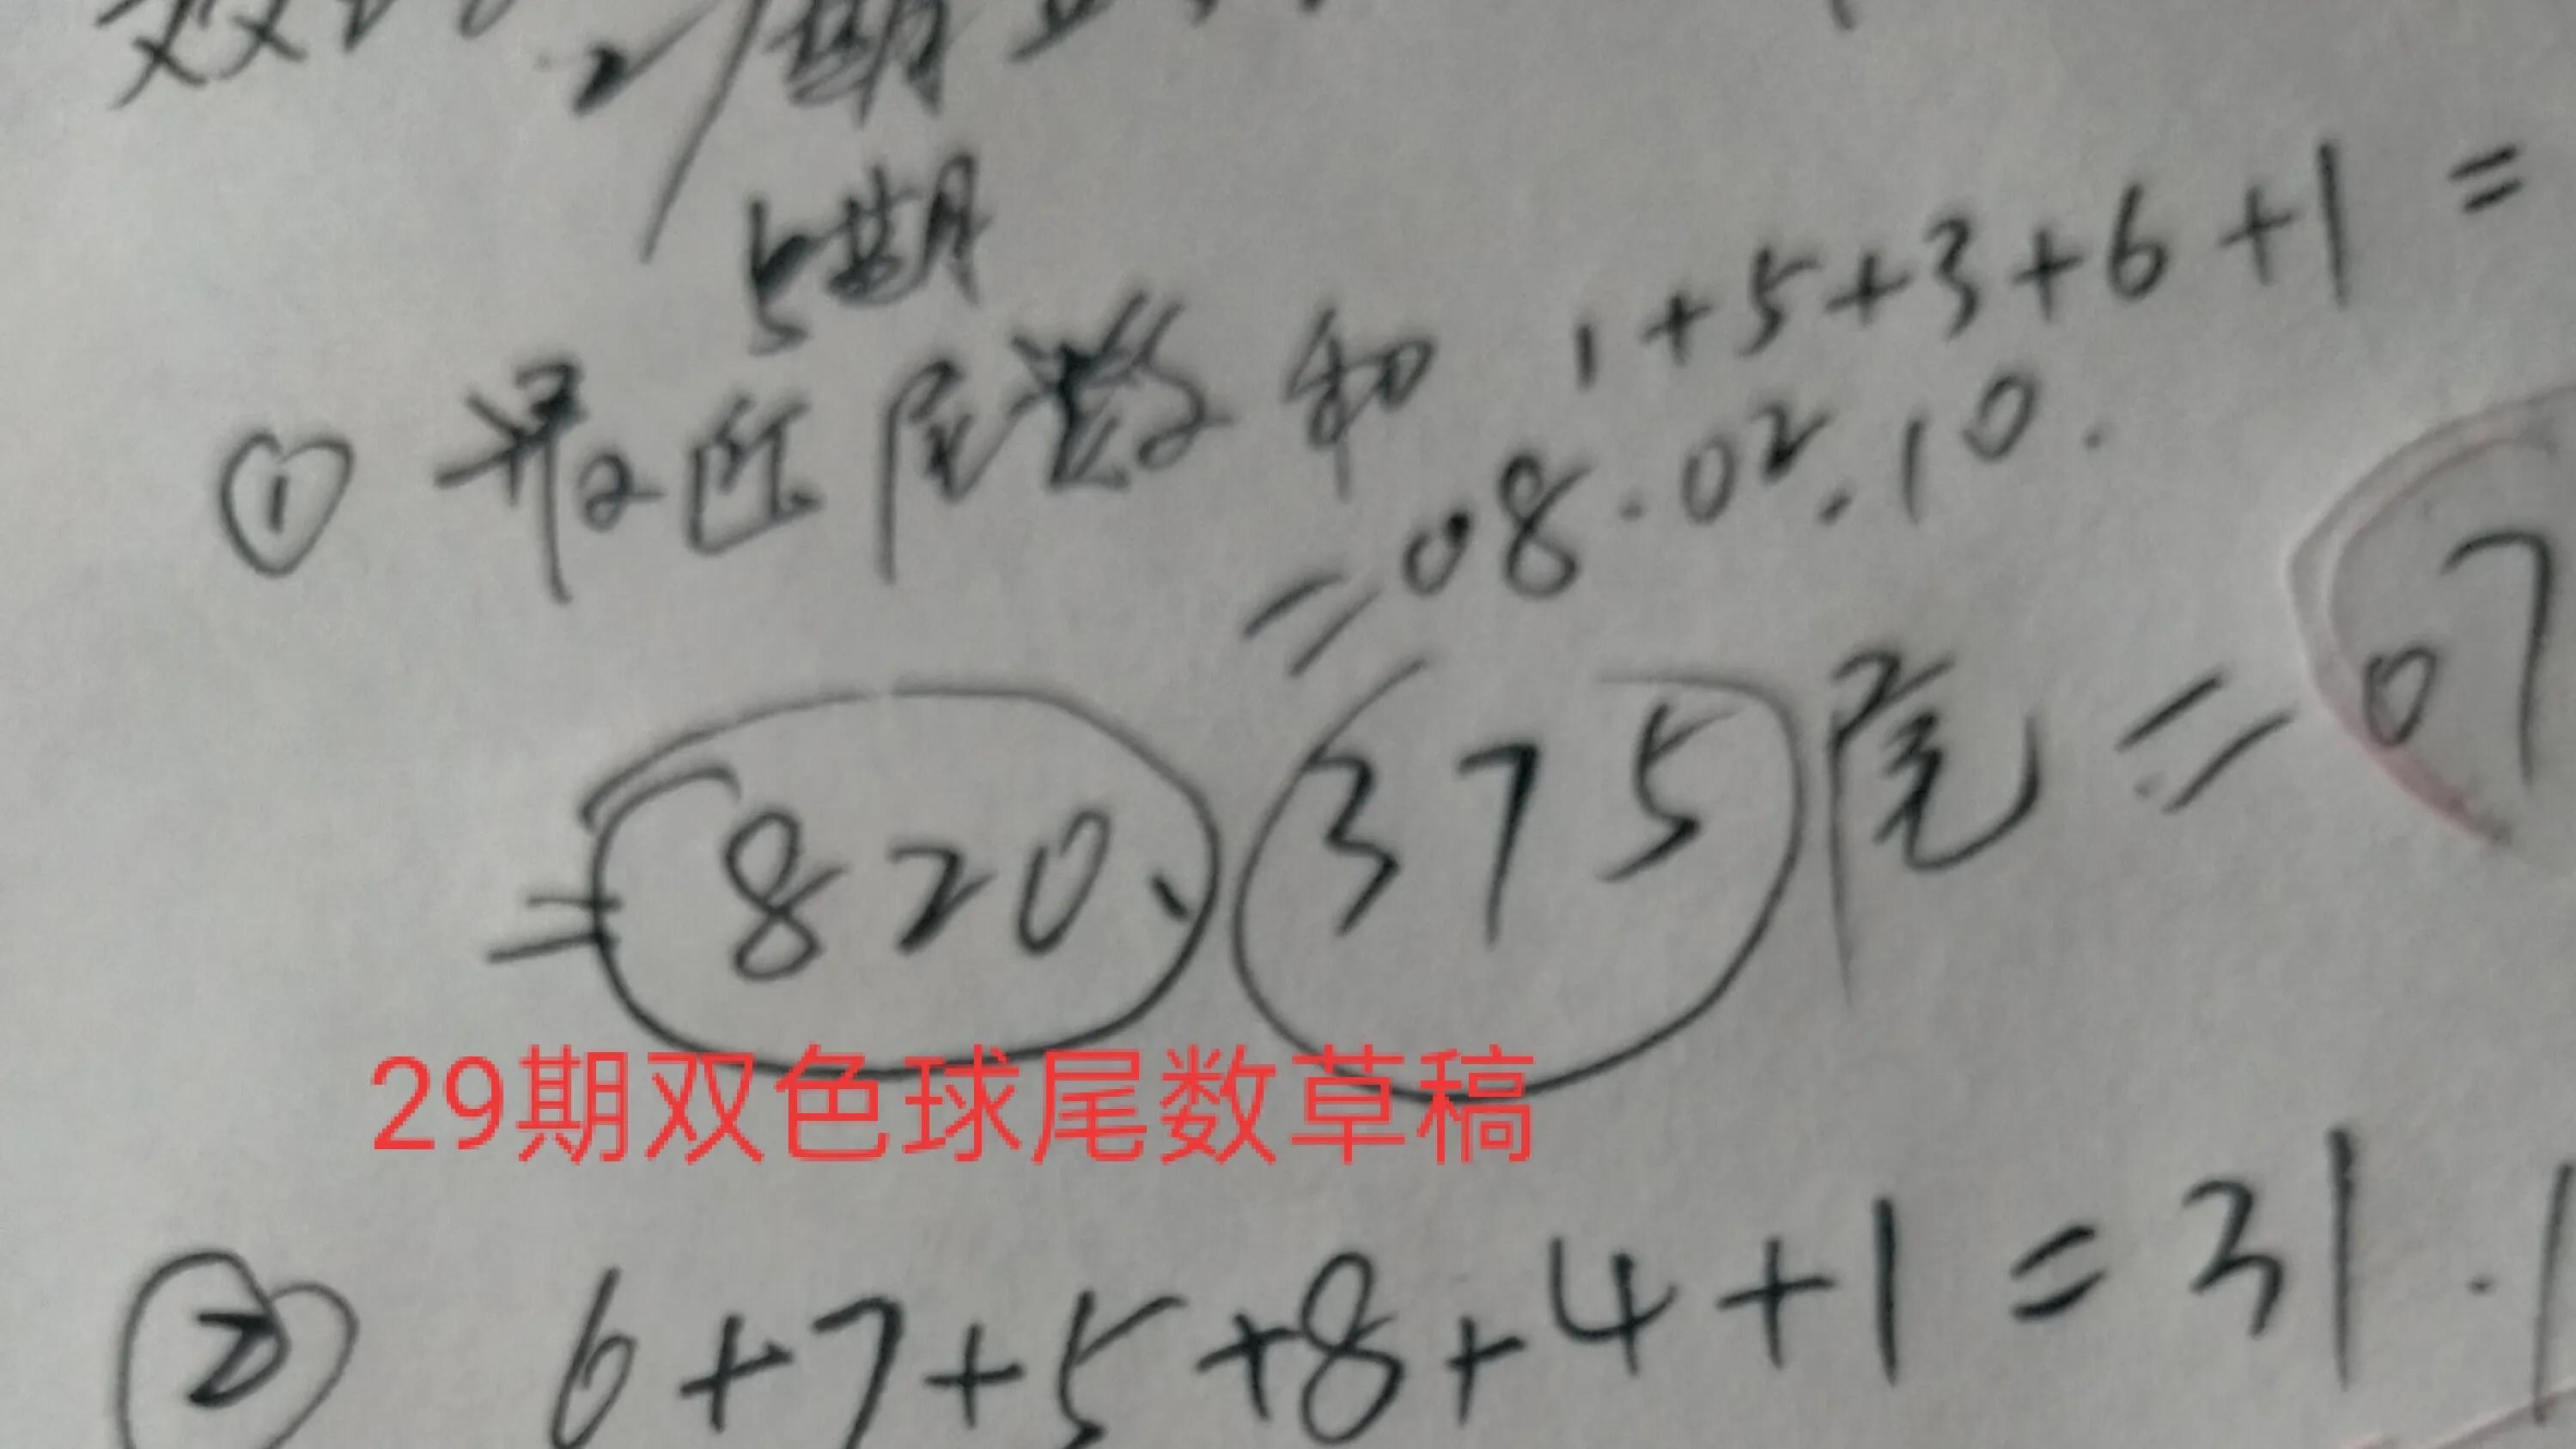 期
5期
① 最近尾数和 1+5+3+6+1=
=08.02.10.
=820、375尾=07
29期双色球尾数草稿
② 6+7+5+8+4+1=31.1